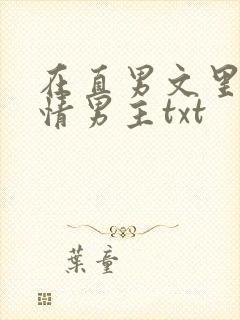 在直男文里
情男主txt
葉童